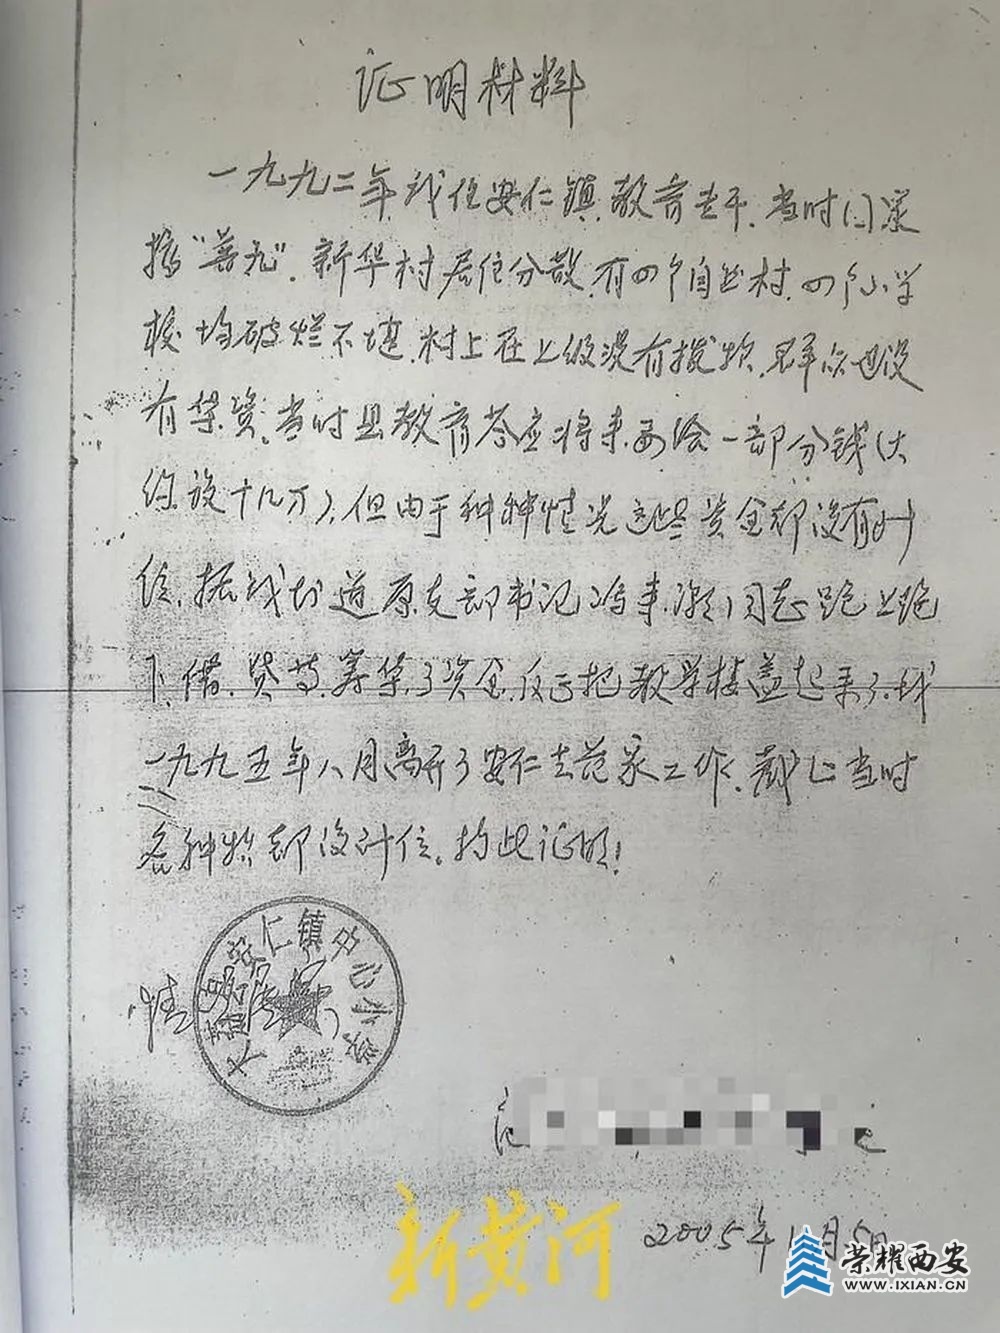 证明材料
一九九二年我任安仁镇教育专干，当时门采
接“普九”，新华村居住分散，有四个自然村，四个小学
校均破烂不堪，村上在上级没有拨款，群众也没
有集资。当时县教育答应将来要给一部分钱（大
约设十几万），但由于种种情况这些资金却没有到
位，据我知道原支部书记冯来潮同志跑上跑
下，借、贷等筹集了资金，反正把教学楼盖起来了，我
一九九五年八月离开了安仁去范家工作，截止当时
各种款却没到位，特此证明！
情况属实
安仁镇中心小学
2005年1月5日
新黄河
荣耀西安
WWW.IXIAN.CN